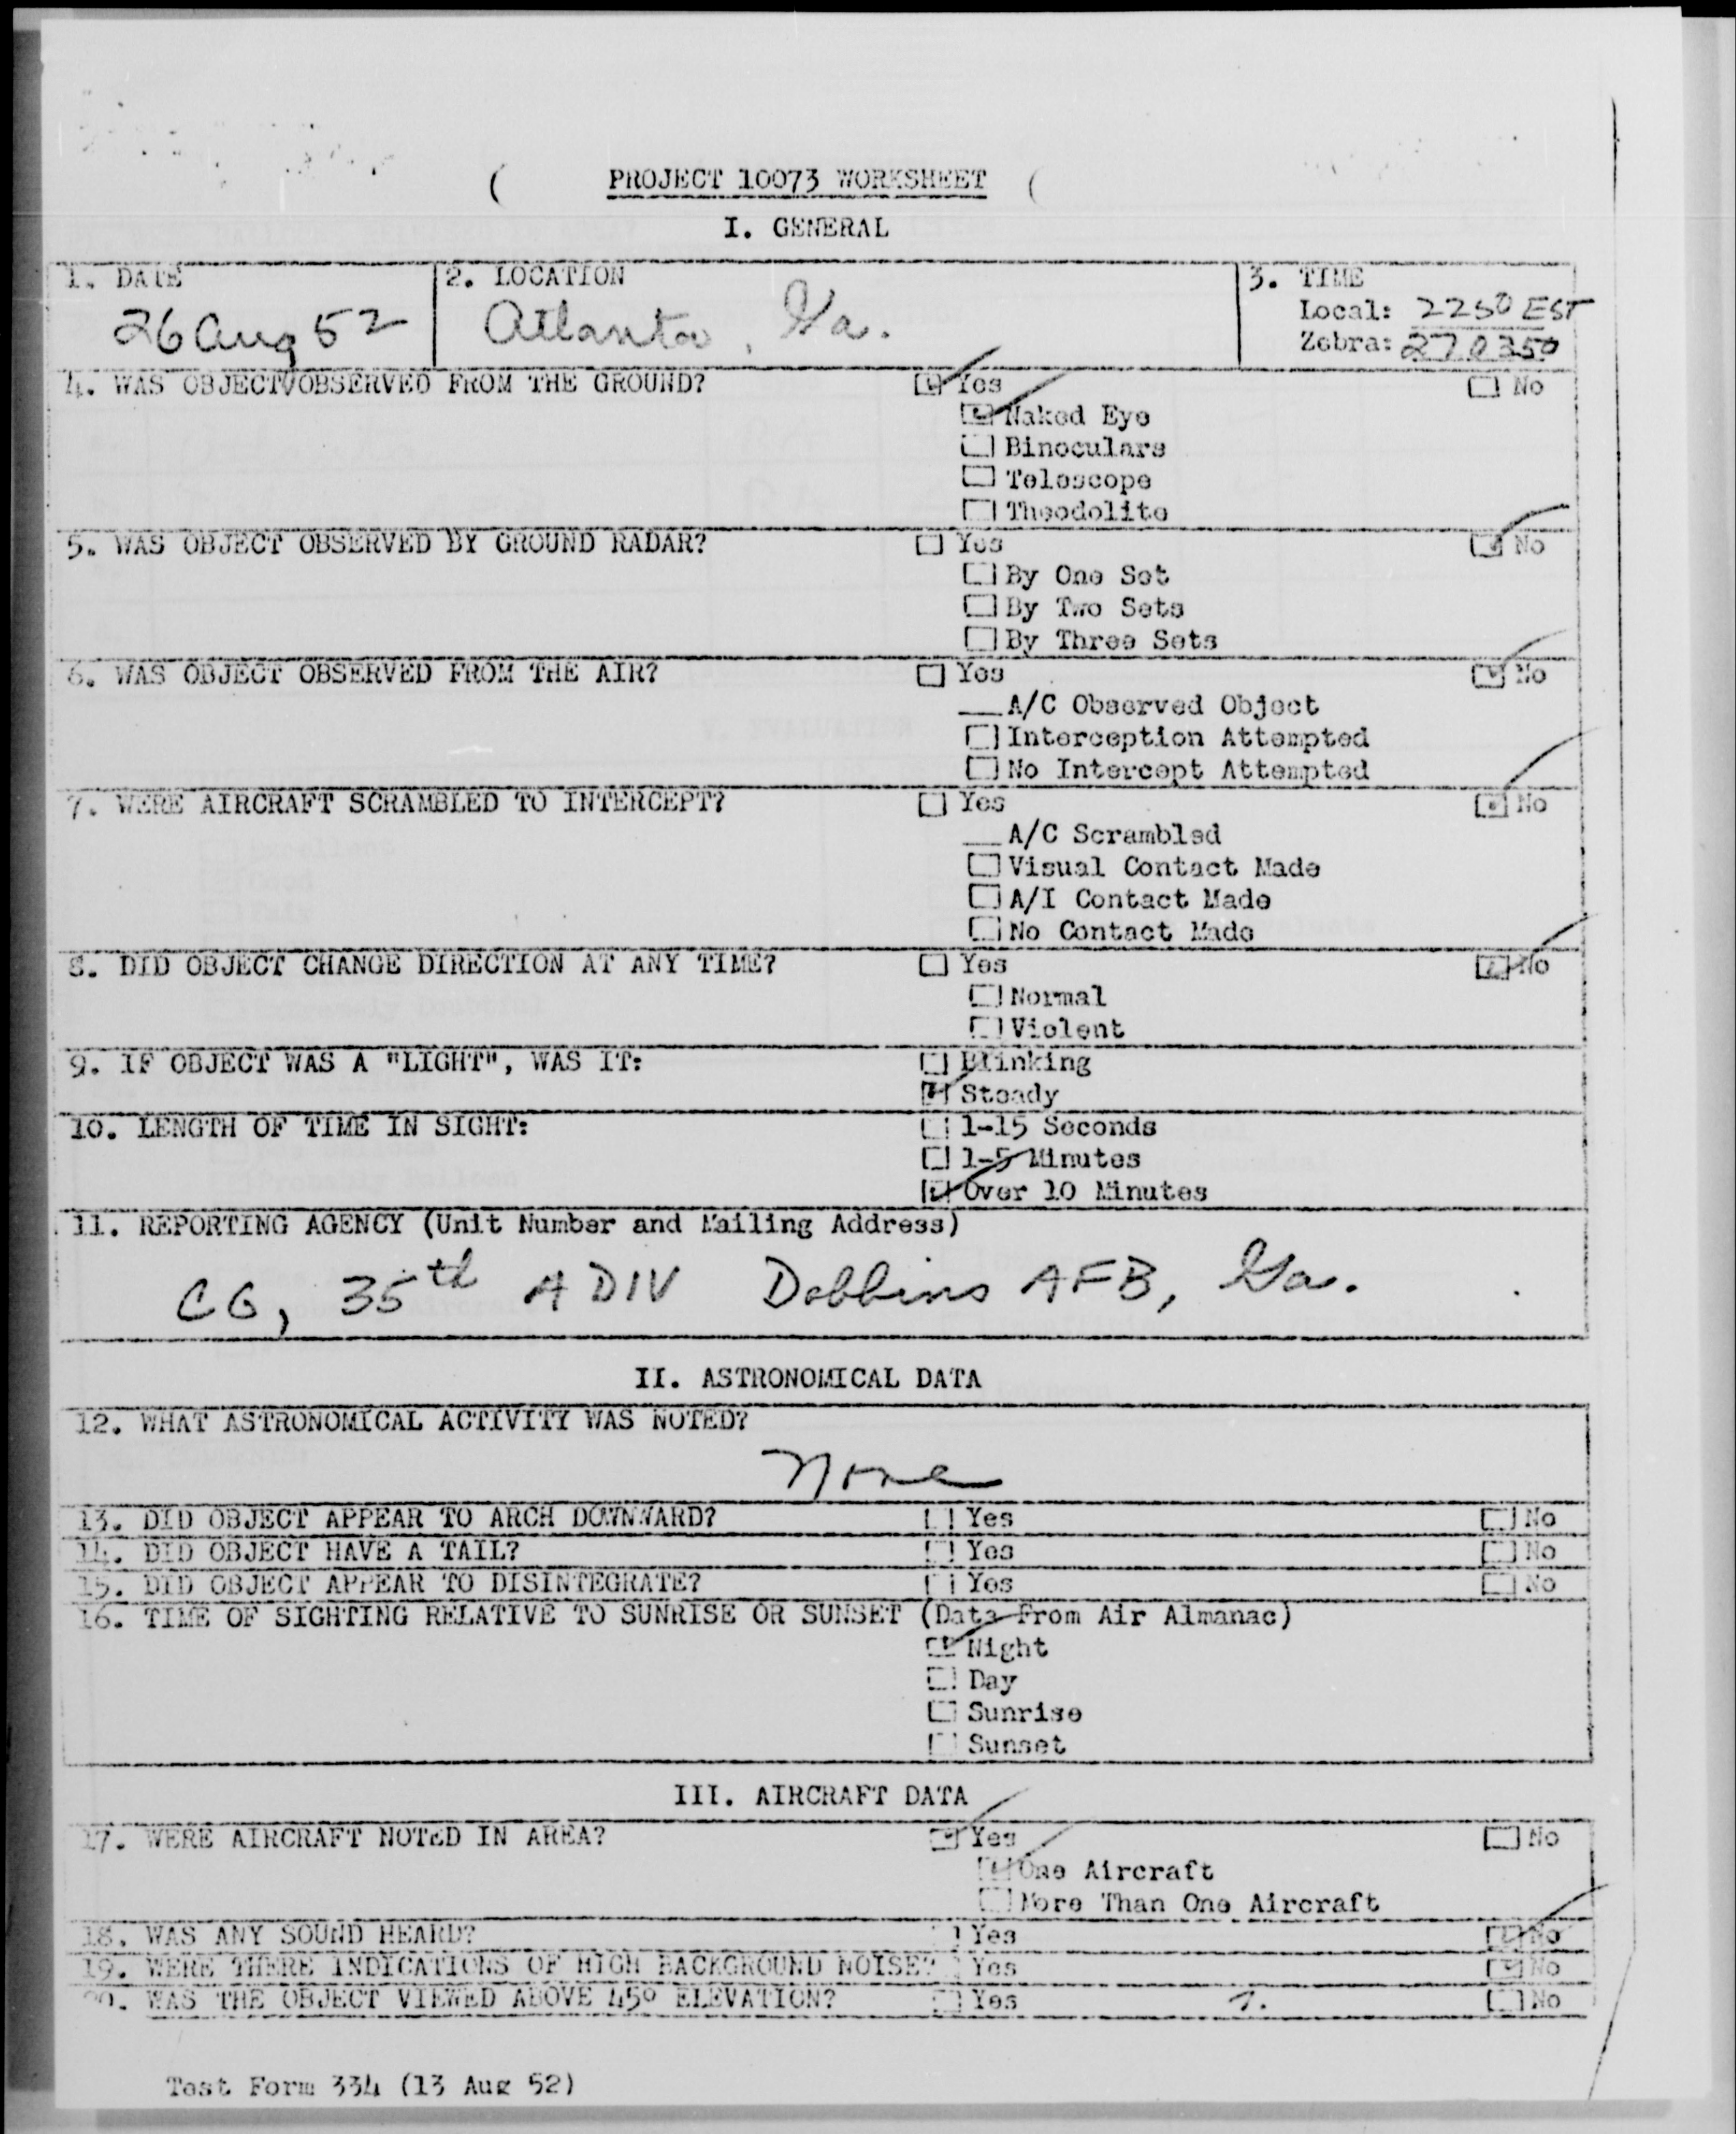 PROJECT 10073 WORKSHEET
I. GENERAL
1. DATE
26 Aug 52
2. LOCATION
Atlanta, Ga.
3. TIME
Local: 2250 EST
Zebra: 270350
4. WAS OBJECT OBSERVED FROM THE GROUND? Yes No
Naked Eye
Binoculars
Telescope
Theodolite
5. WAS OBJECT OBSERVED BY GROUND RADAR? Yes No
By One Set
By Two Sets
By Three Sets
6. WAS OBJECT OBSERVED FROM THE AIR? Yes No
A/C Observed Object
Interception Attempted
No Intercept Attempted
7. WERE AIRCRAFT SCRAMBLED TO INTERCEPT? Yes No
A/C Scrambled
Visual Contact Made
A/I Contact Made
No Contact Made
8. DID OBJECT CHANGE DIRECTION AT ANY TIME? Yes No
Normal
Violent
9. IF OBJECT WAS A "LIGHT", WAS IT: Blinking
Steady
10. LENGTH OF TIME IN SIGHT: 1-15 Seconds
1-5 Minutes
Over 10 Minutes
11. REPORTING AGENCY (Unit Number and Mailing Address)
CG, 35th ADIV Dobbins AFB, Ga.
II. ASTRONOMICAL DATA
12. WHAT ASTRONOMICAL ACTIVITY WAS NOTED?
None
13. DID OBJECT APPEAR TO ARCH DOWNWARD? Yes No
14. DID OBJECT HAVE A TAIL? Yes No
15. DID OBJECT APPEAR TO DISINTEGRATE? Yes No
16. TIME OF SIGHTING RELATIVE TO SUNRISE OR SUNSET (Data From Air Almanac)
Night
Day
Sunrise
Sunset
III. AIRCRAFT DATA
17. WERE AIRCRAFT NOTED IN AREA? Yes No
One Aircraft
More Than One Aircraft
18. WAS ANY SOUND HEARD? Yes No
19. WERE THERE INDICATIONS OF HIGH BACKGROUND NOISE? Yes No
20. WAS THE OBJECT VIEWED ABOVE 45° ELEVATION? Yes ?. No
Test Form 334 (13 Aug 52)